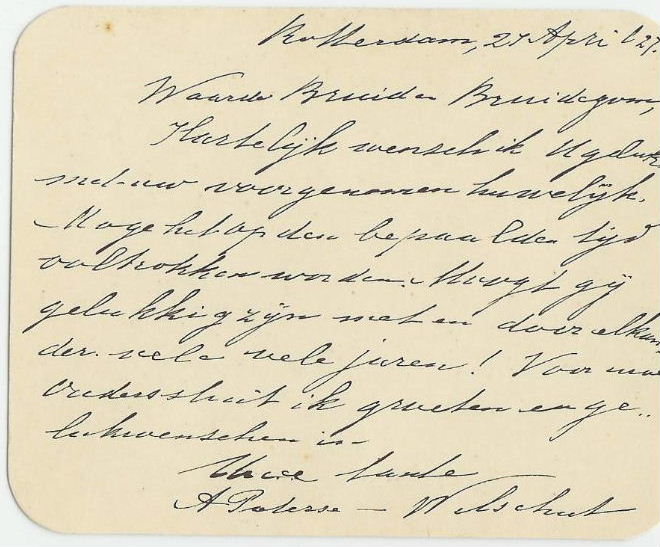 Rotterdam, 27 April '27.
Waarde Bruid en Bruidegom,
Hartelijk wensch ik U geluk
met uw voorgenomen huwelijk.
Moge het op den bepaalden tijd
voltrokken worden. Moogt gij
gelukkig zijn met en door elkan
der vele vele jaren! Voor uwe
ouders sluit ik groeten en ge..
lukwenschen in
Uwe tante
A Poterse - Wilschut